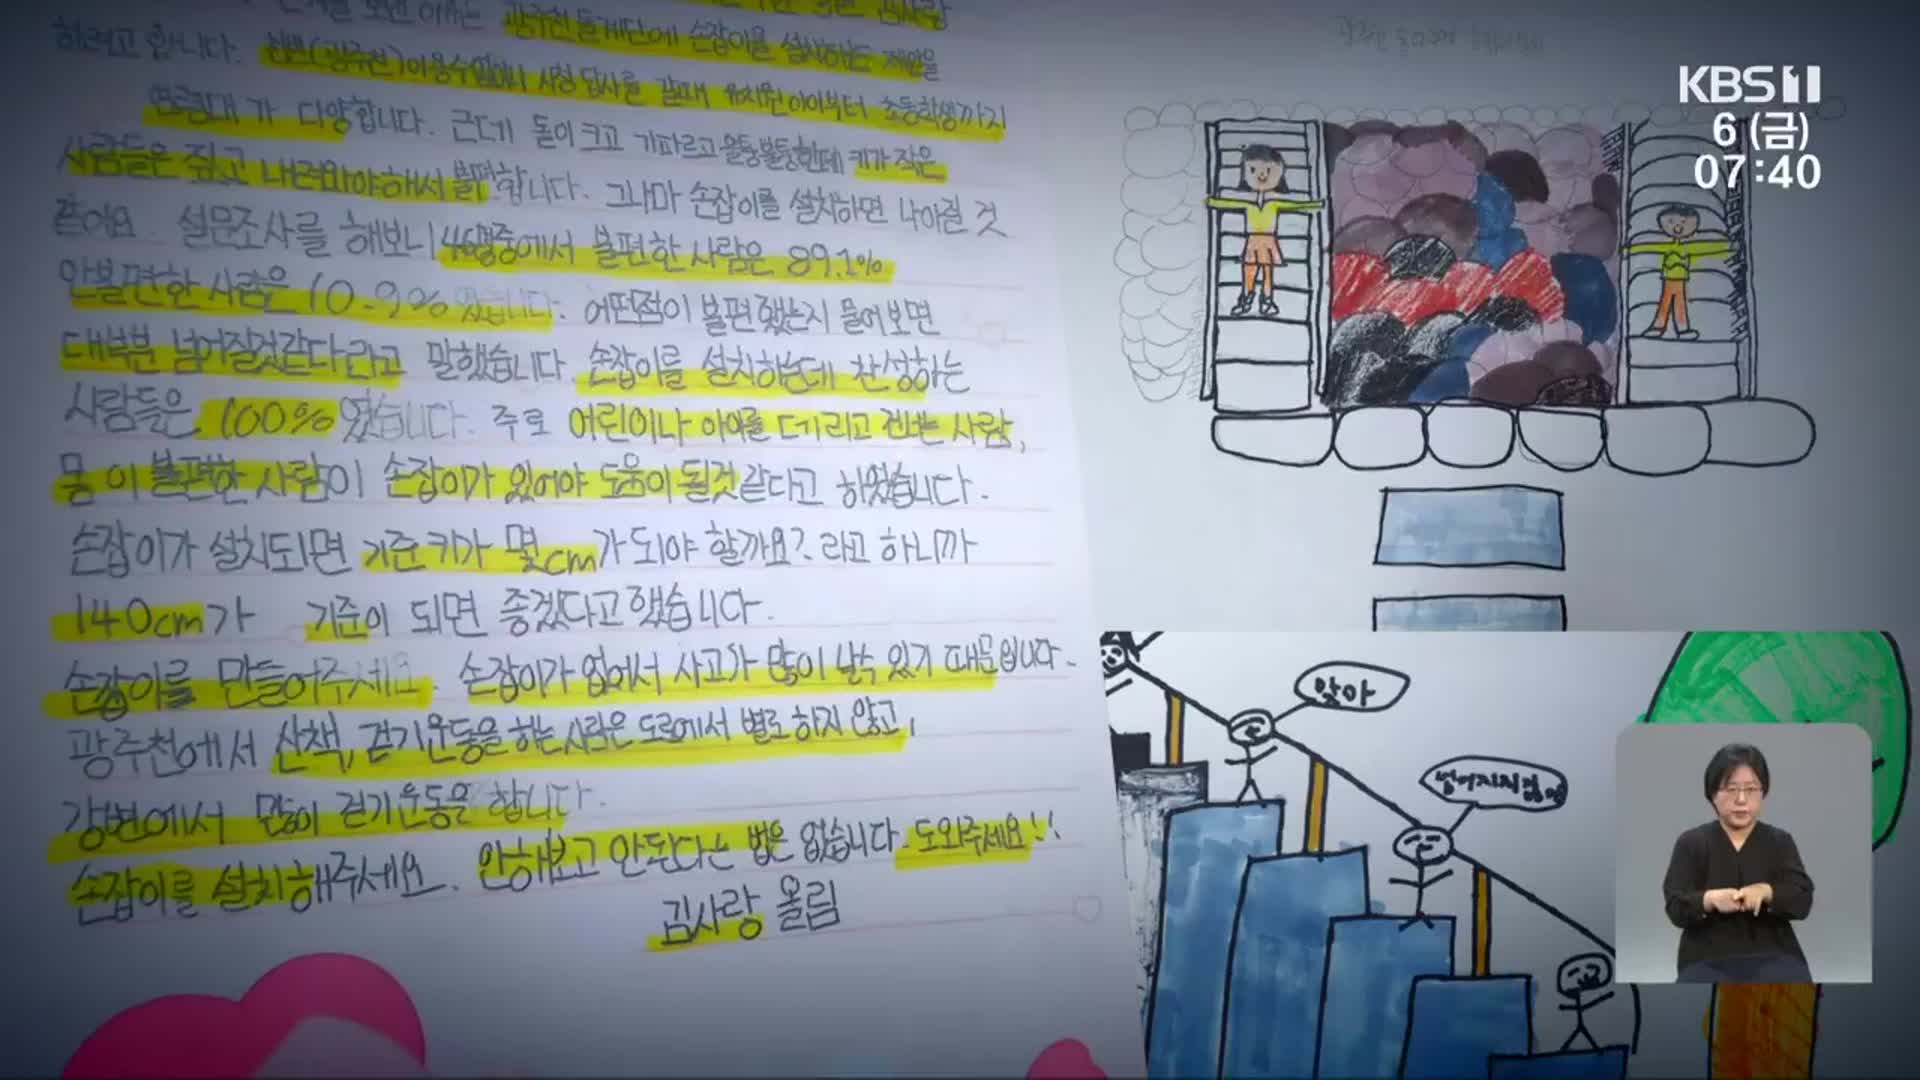 광주천 돌계단에 손잡이를 설치하는 제안을
하려고 합니다. 천변(광주천)이용수업에서 사정 답사를 갈때 유치원아이부터 초등학생까지
연령대가 다양합니다. 근데 돌이 크고 가파르고 울퉁불퉁한데 키가 작은
사람들은 짚고 내려와야해서 불편합니다. 그나마 손잡이를 설치하면 나아질 것
같아요. 설문조사를 해보니 46명중에서 불편한 사람은 89.1%
안불편한 사람은 10.9% 였습니다. 어떤점이 불편했는지 물어보면
대부분 넘어질것같다라고 말했습니다. 손잡이를 설치하는데 찬성하는
사람들은 100% 였습니다. 주로 어린이나 아이를 데리고 건너는 사람,
몸이 불편한 사람이 손잡이가 있어야 도움이 될것 같다고 하였습니다.
손잡이가 설치되면 기준 키가 몇cm가 되야 할까요? 라고 하니까
140cm가 기준이 되면 좋겠다고 했습니다.
손잡이를 만들어주세요. 손잡이가 없어서 사고가 많이 날수 있기 때문입니다.
광주천에서 산책, 걷기운동을 하는 사람은 도로에서 별로 하지 않고,
강변에서 많이 걷기운동을 합니다.
손잡이를 설치해주세요. 안해보고 안된다는 법은 없습니다. 도와주세요!!
김사랑 올림
KBS 1
6 (금)
07:40
맞아